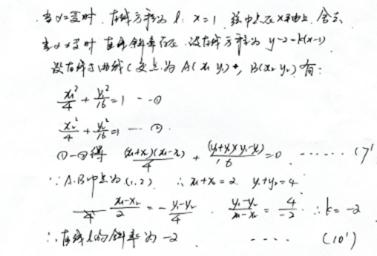 当α=π/2时,直线方程为 l: x=1 弦中点在x轴上,舍去
当α≠π/2时 直线斜率存在 设直线方程为 y-2=k(x-1)
设直线与曲线C交点为A(x₁ y₁), B(x₂ y₂) 有:
x₁²/4 + y₁²/16 = 1 --①
x₂²/4 + y₂²/16 = 1 --②
①-②得 (x₁+x₂)(x₁-x₂)/4 + (y₁+y₂)(y₁-y₂)/16 = 0 ······ (7'
∵A.B中点为(1,2) ∴x₁+x₂=2 y₁+y₂=4
(x₁-x₂)/2 = -(y₁-y₂)/4 (y₁-y₂)/(x₁-x₂) = 4/-2 ∴k=-2
∴直线l的斜率为-2 ···· (10')